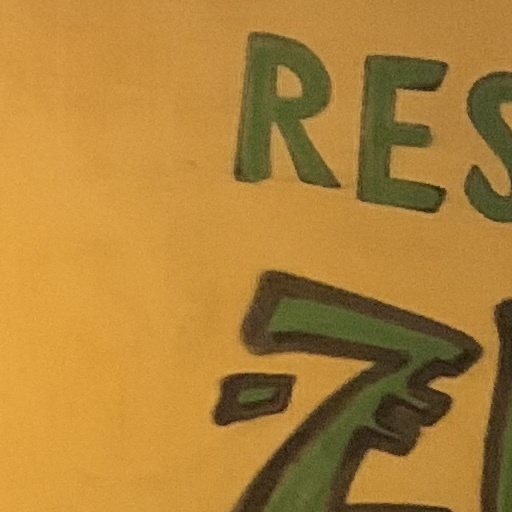 RES
Z